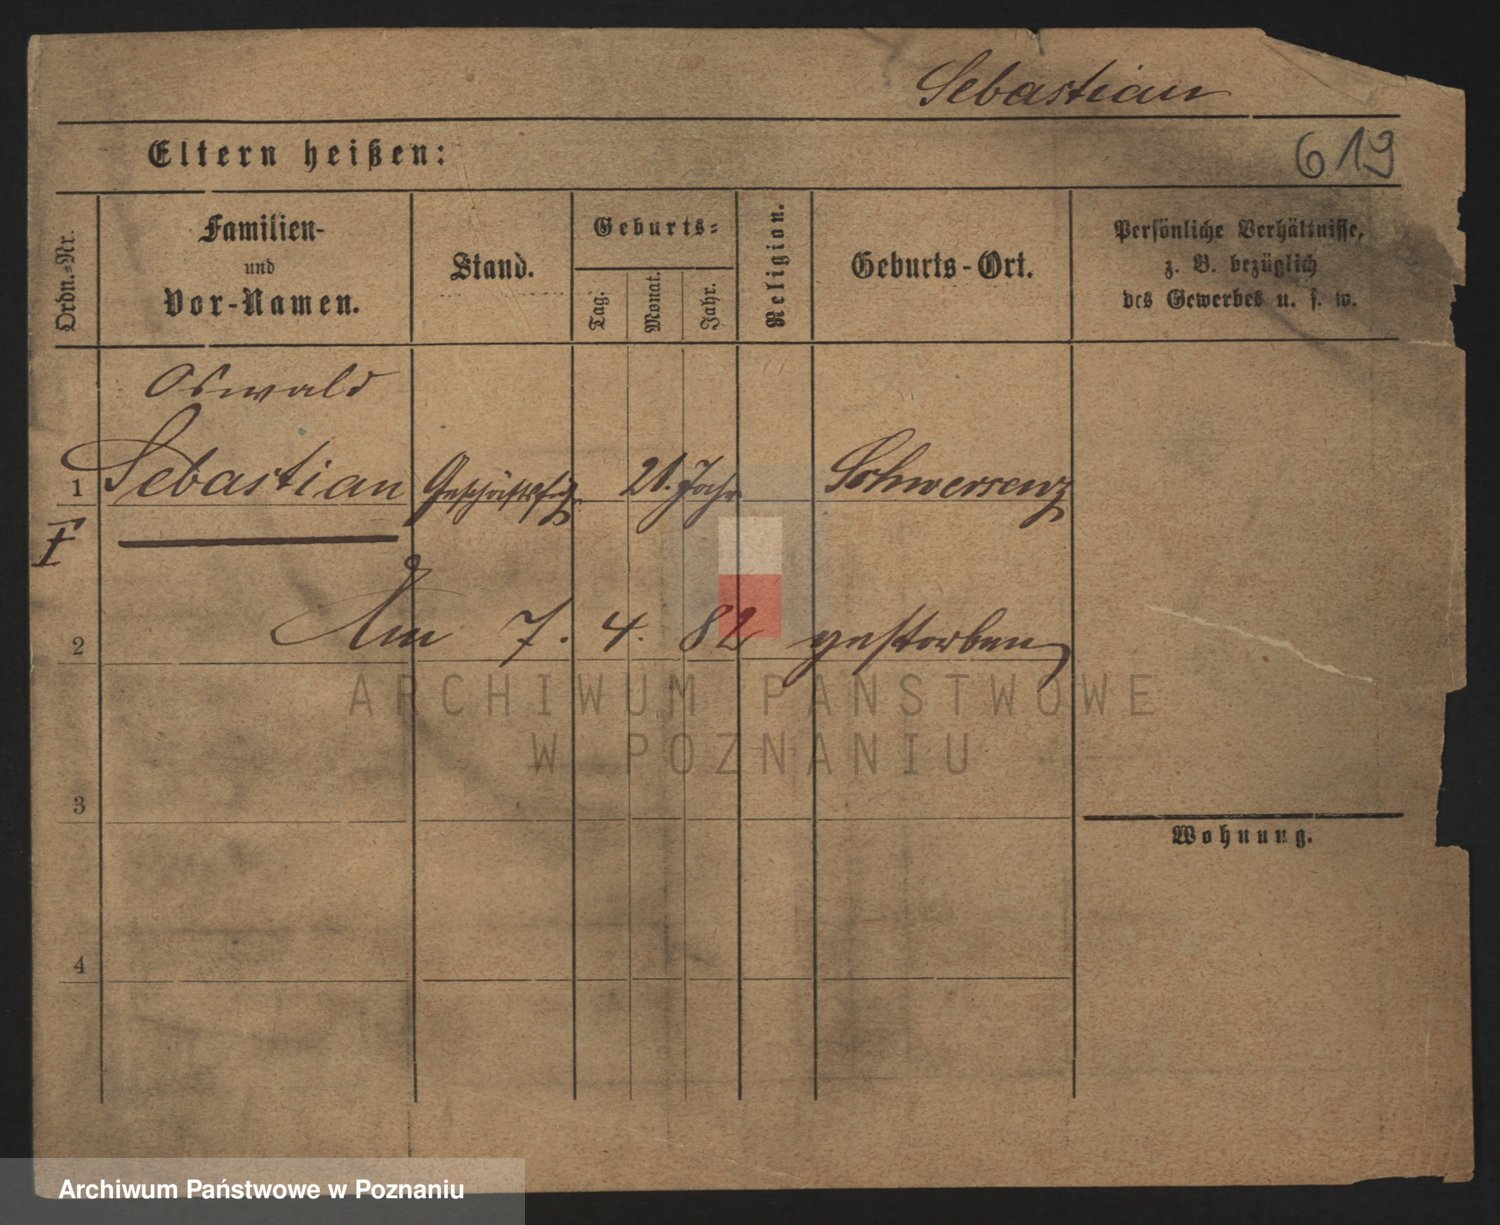 Sebastian
Eltern heißen:
619
Ordn.-Nr.
Familien-
und
Vor-Namen.
Stand.
Geburts-
Tag.
Monat.
Jahr.
Religion.
Geburts-Ort.
Persönliche Verhältnisse,
z. B. bezüglich
des Gewerbes u. s. w.
Oswald
1 Sebastian 21. Jahr Schwersenz
2 Am 7. 4. 82 gestorben
ARCHIWUM PAŃSTWOWE
W POZNANIU
3
Wohnung.
4
Archiwum Państwowe w Poznaniu